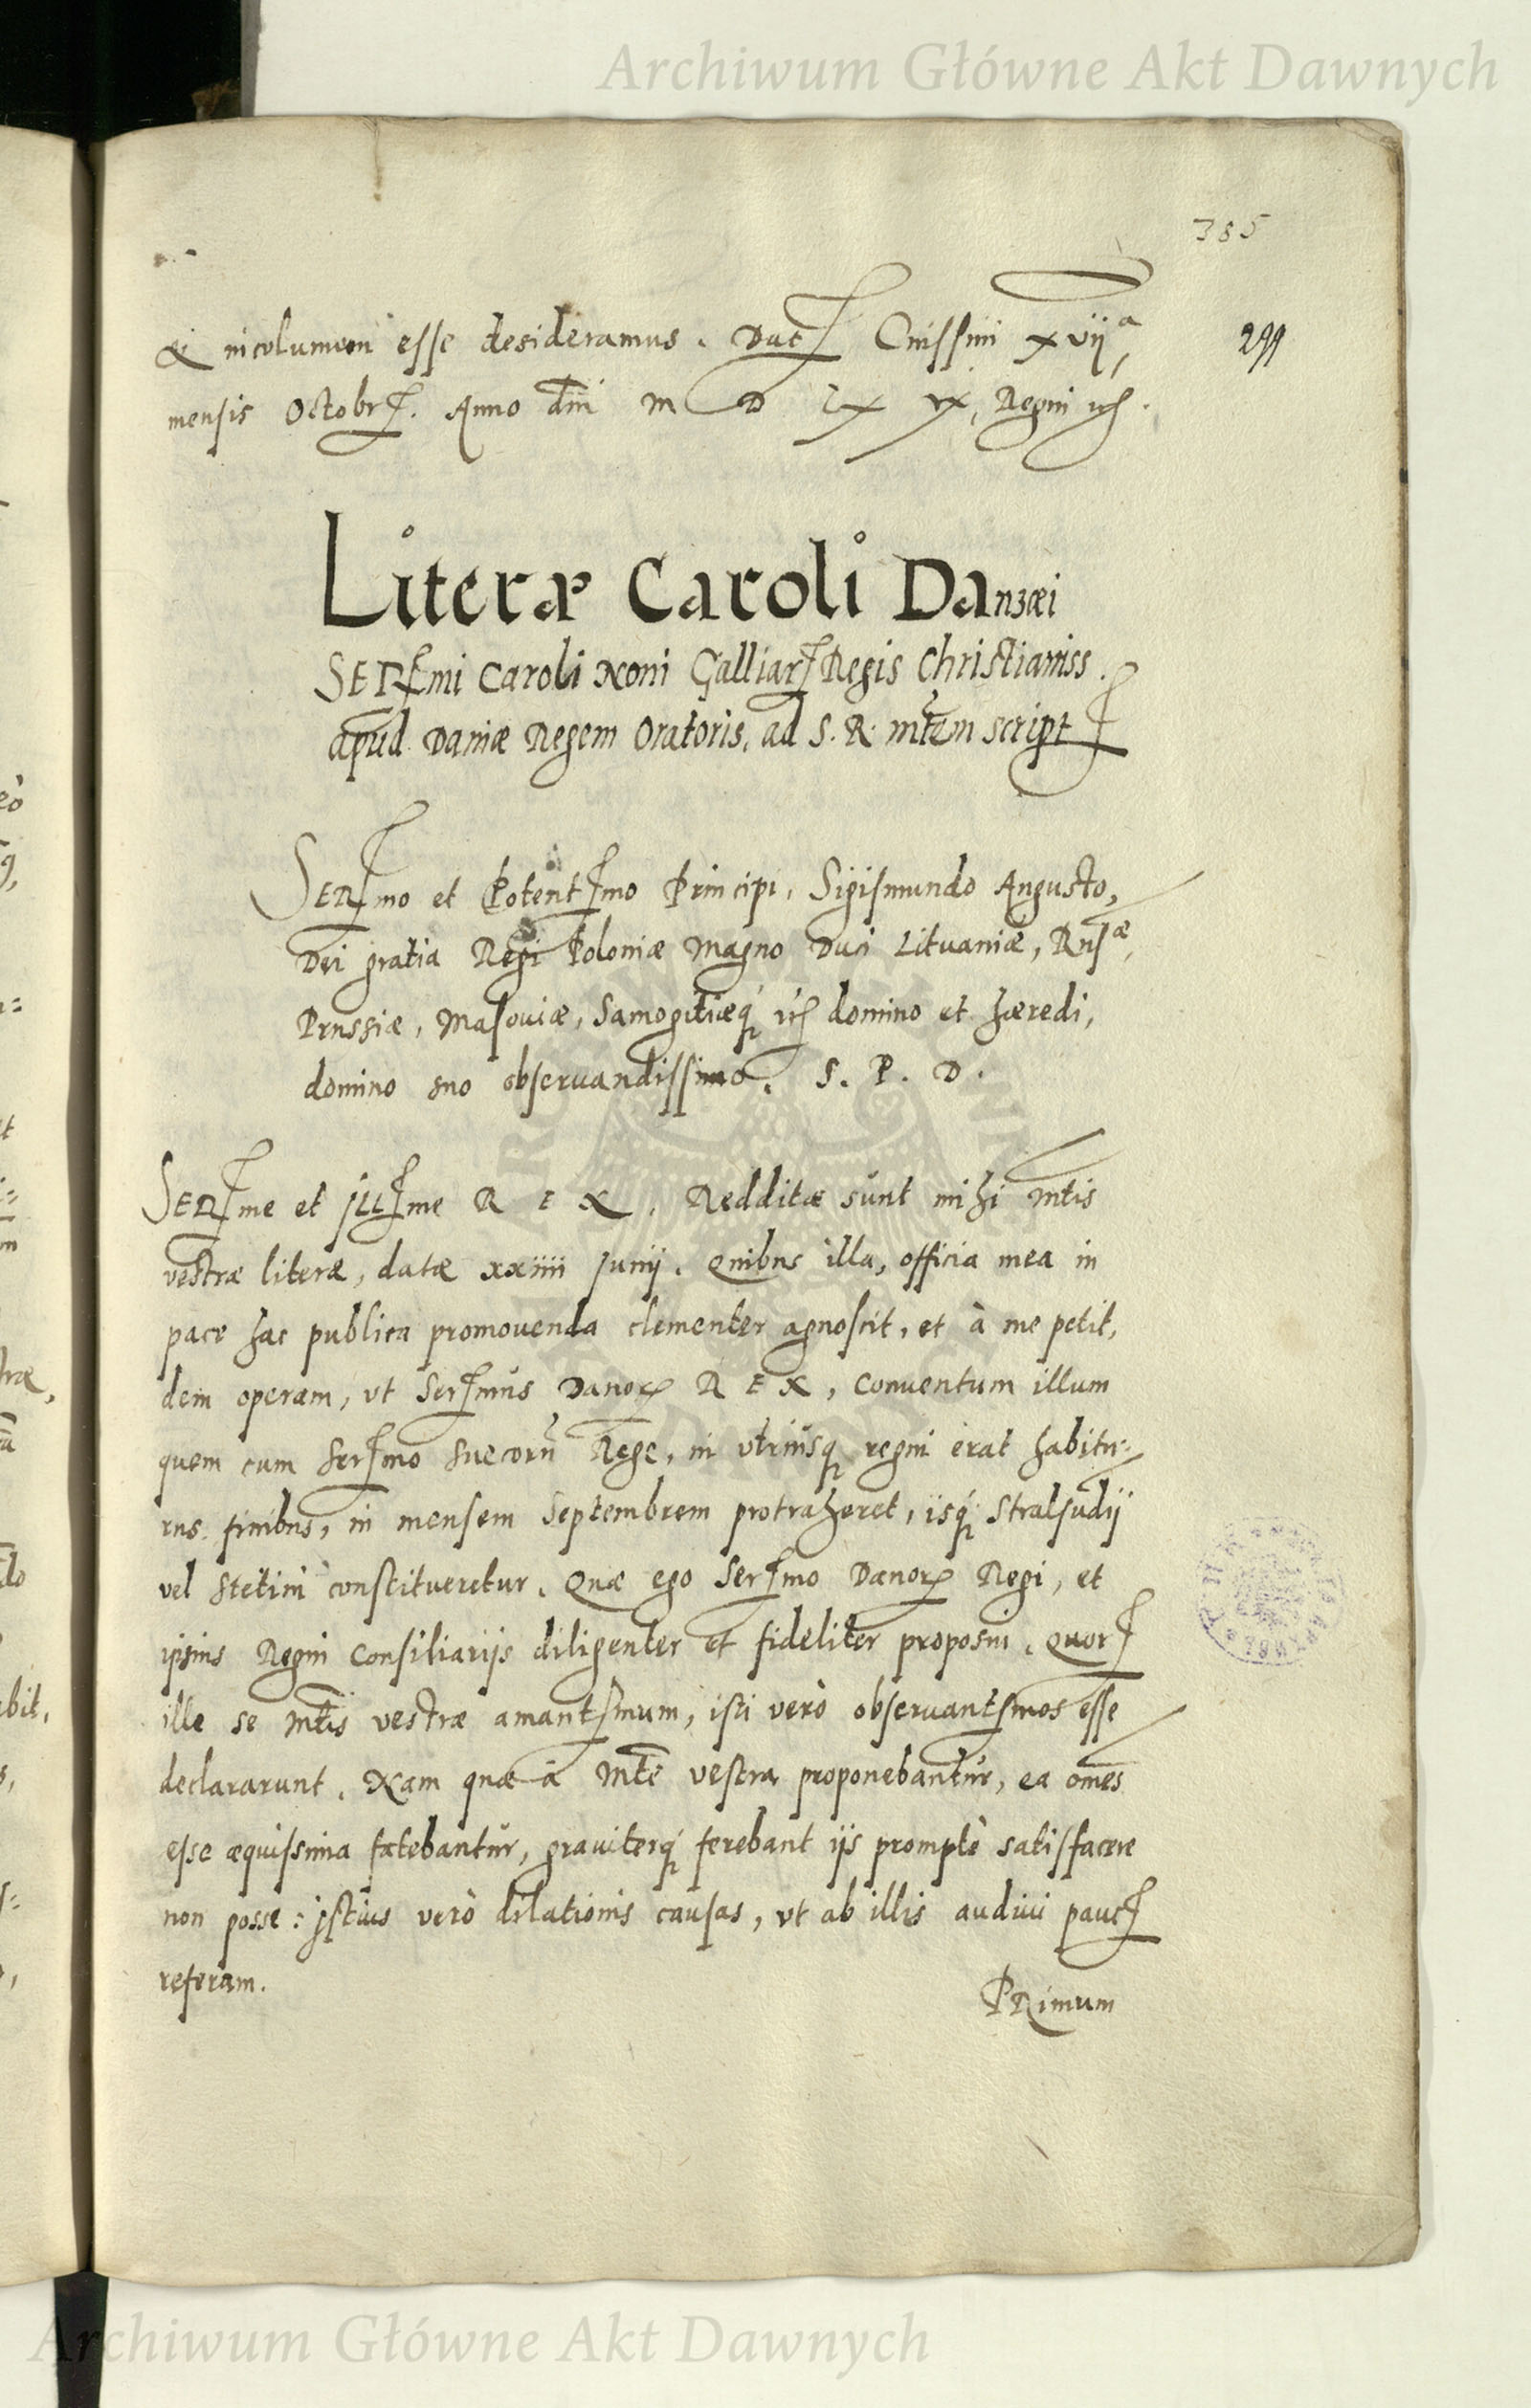 Archiwum Główne Akt Dawnych
385
299
& incolumem esse desideramus. Dat Cnissini xvija
mensis Octobr. Anno dni M D LX IX, Regni
Literæ Caroli Danzæi
SERmi Caroli Noni Galliar Regis Christianiss.
apud Daniæ Regem Oratoris, ad S. R. Mtem script
SERmo et Potentmo Principi, Sigismundo Augusto,
Dei gratia Regi Poloniæ Magno Duci Lituaniæ, Rusæ,
Prussiæ, Masouiæ, Samogitiæq domino et hæredi,
domino suo obseruandissimo. S. P. D.
SERme et Illme REX. Redditæ sunt mihi Mtis
vestræ literæ, datæ xxiiii Junij. Quibus illa, officia mea in
pace hac publica promouenda clementer agnoscit, et à me petit,
dem operam, vt Sermus Danor REX, Conuentum illum
quem cum Sermo Suecorũ Rege, in vtriusq regni erat habitu-
rus finibus, in mensem Septembrem protraheret, isq Stralsudij
vel Stetini constitueretur. Quæ ego Sermo Danor Regi, et
ipsius Regni Consiliarijs diligenter et fideliter proposui. Quor
ille se Mtis vestræ amantsmum, isti verò obseruantsmos esse
declararunt. Nam quæ à Mte vestra proponebantur, ea omẽs
esse æquissima fatebantur, grauiterq ferebant ijs promptè satisfacere
non posse: Istius verò dilationis causas, vt ab illis audiui pauc
referam.
PRimum
Archiwum Główne Akt Dawnych